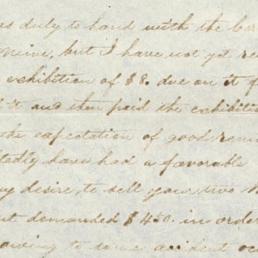 duly to hand with the
mine, but I have not yet
exhibition of $8. due on it
and then paid the exhibition
the expectation of good
have had a favorable
desire, to sell your two
demanded $450. in order
owing to some accident